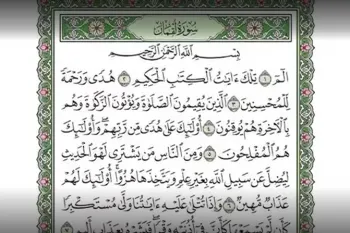 سُورَةُ لُقْمَانَ
بِسْمِ اللَّهِ الرَّحْمَٰنِ الرَّحِيمِ
الٓمٓ ١ تِلْكَ ءَايَٰتُ الْكِتَٰبِ الْحَكِيمِ ٢ هُدًى وَرَحْمَةً
لِّلْمُحْسِنِينَ ٣ الَّذِينَ يُقِيمُونَ الصَّلَوٰةَ وَيُؤْتُونَ الزَّكَوٰةَ وَهُم
بِالْءَاخِرَةِ هُمْ يُوقِنُونَ ٤ أُو۟لَٰٓئِكَ عَلَىٰ هُدًى مِّن رَّبِّهِمْ وَأُو۟لَٰٓئِكَ
هُمُ الْمُفْلِحُونَ ٥ وَمِنَ النَّاسِ مَن يَشْتَرِى لَهْوَ الْحَدِيثِ
لِيُضِلَّ عَن سَبِيلِ اللَّهِ بِغَيْرِ عِلْمٍ وَيَتَّخِذَهَا هُزُوًا أُو۟لَٰٓئِكَ لَهُمْ
عَذَابٌ مُّهِينٌ ٦ وَإِذَا تُتْلَىٰ عَلَيْهِ ءَايَٰتُنَا وَلَّىٰ مُسْتَكْبِرًا